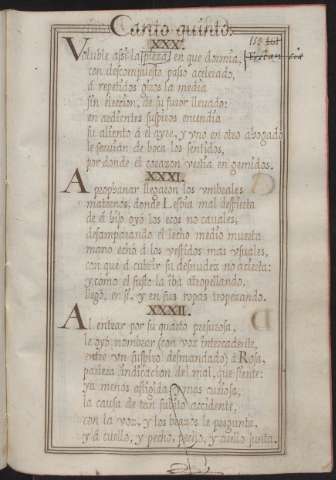 Canto quinto.
XXX.
Voluble assi la pieza, en que dormia,
con descompuesto passo acelerado,
à repetidos giros la media
sin eleccion, de su furor llevado:
en ardientes suspiros encendia
su aliento à el ayre, y uno en otro ahogado
le servian de boca los sentidos,
por donde el corazon vertia en gemidos.
XXXI.
A prophanar llegaron los umbrales
maternos, donde Lesbia mal despierta
de à hijo oyó los ecos no cavales;
desamparando el lecho medio muerta
mano echò à los vestidos mas usuales,
con que à cubrir su desnudez no acierta:
y como el susto la iba atropellando,
llegò, en si, y en sus ropas tropezando.
XXXII.
Al entrar por su quarto presurosa,
le oyó nombrar (con voz intercadente,
entre un suspiro desmandado) à Rosa,
partera indicacion del mal, que siente:
ya menos afligida, y mas curiosa,
la causa de tan subito accidente,
con la voz, y los brazos le pregunta,
y à cuello, y pecho, pecho, y cuello junta.